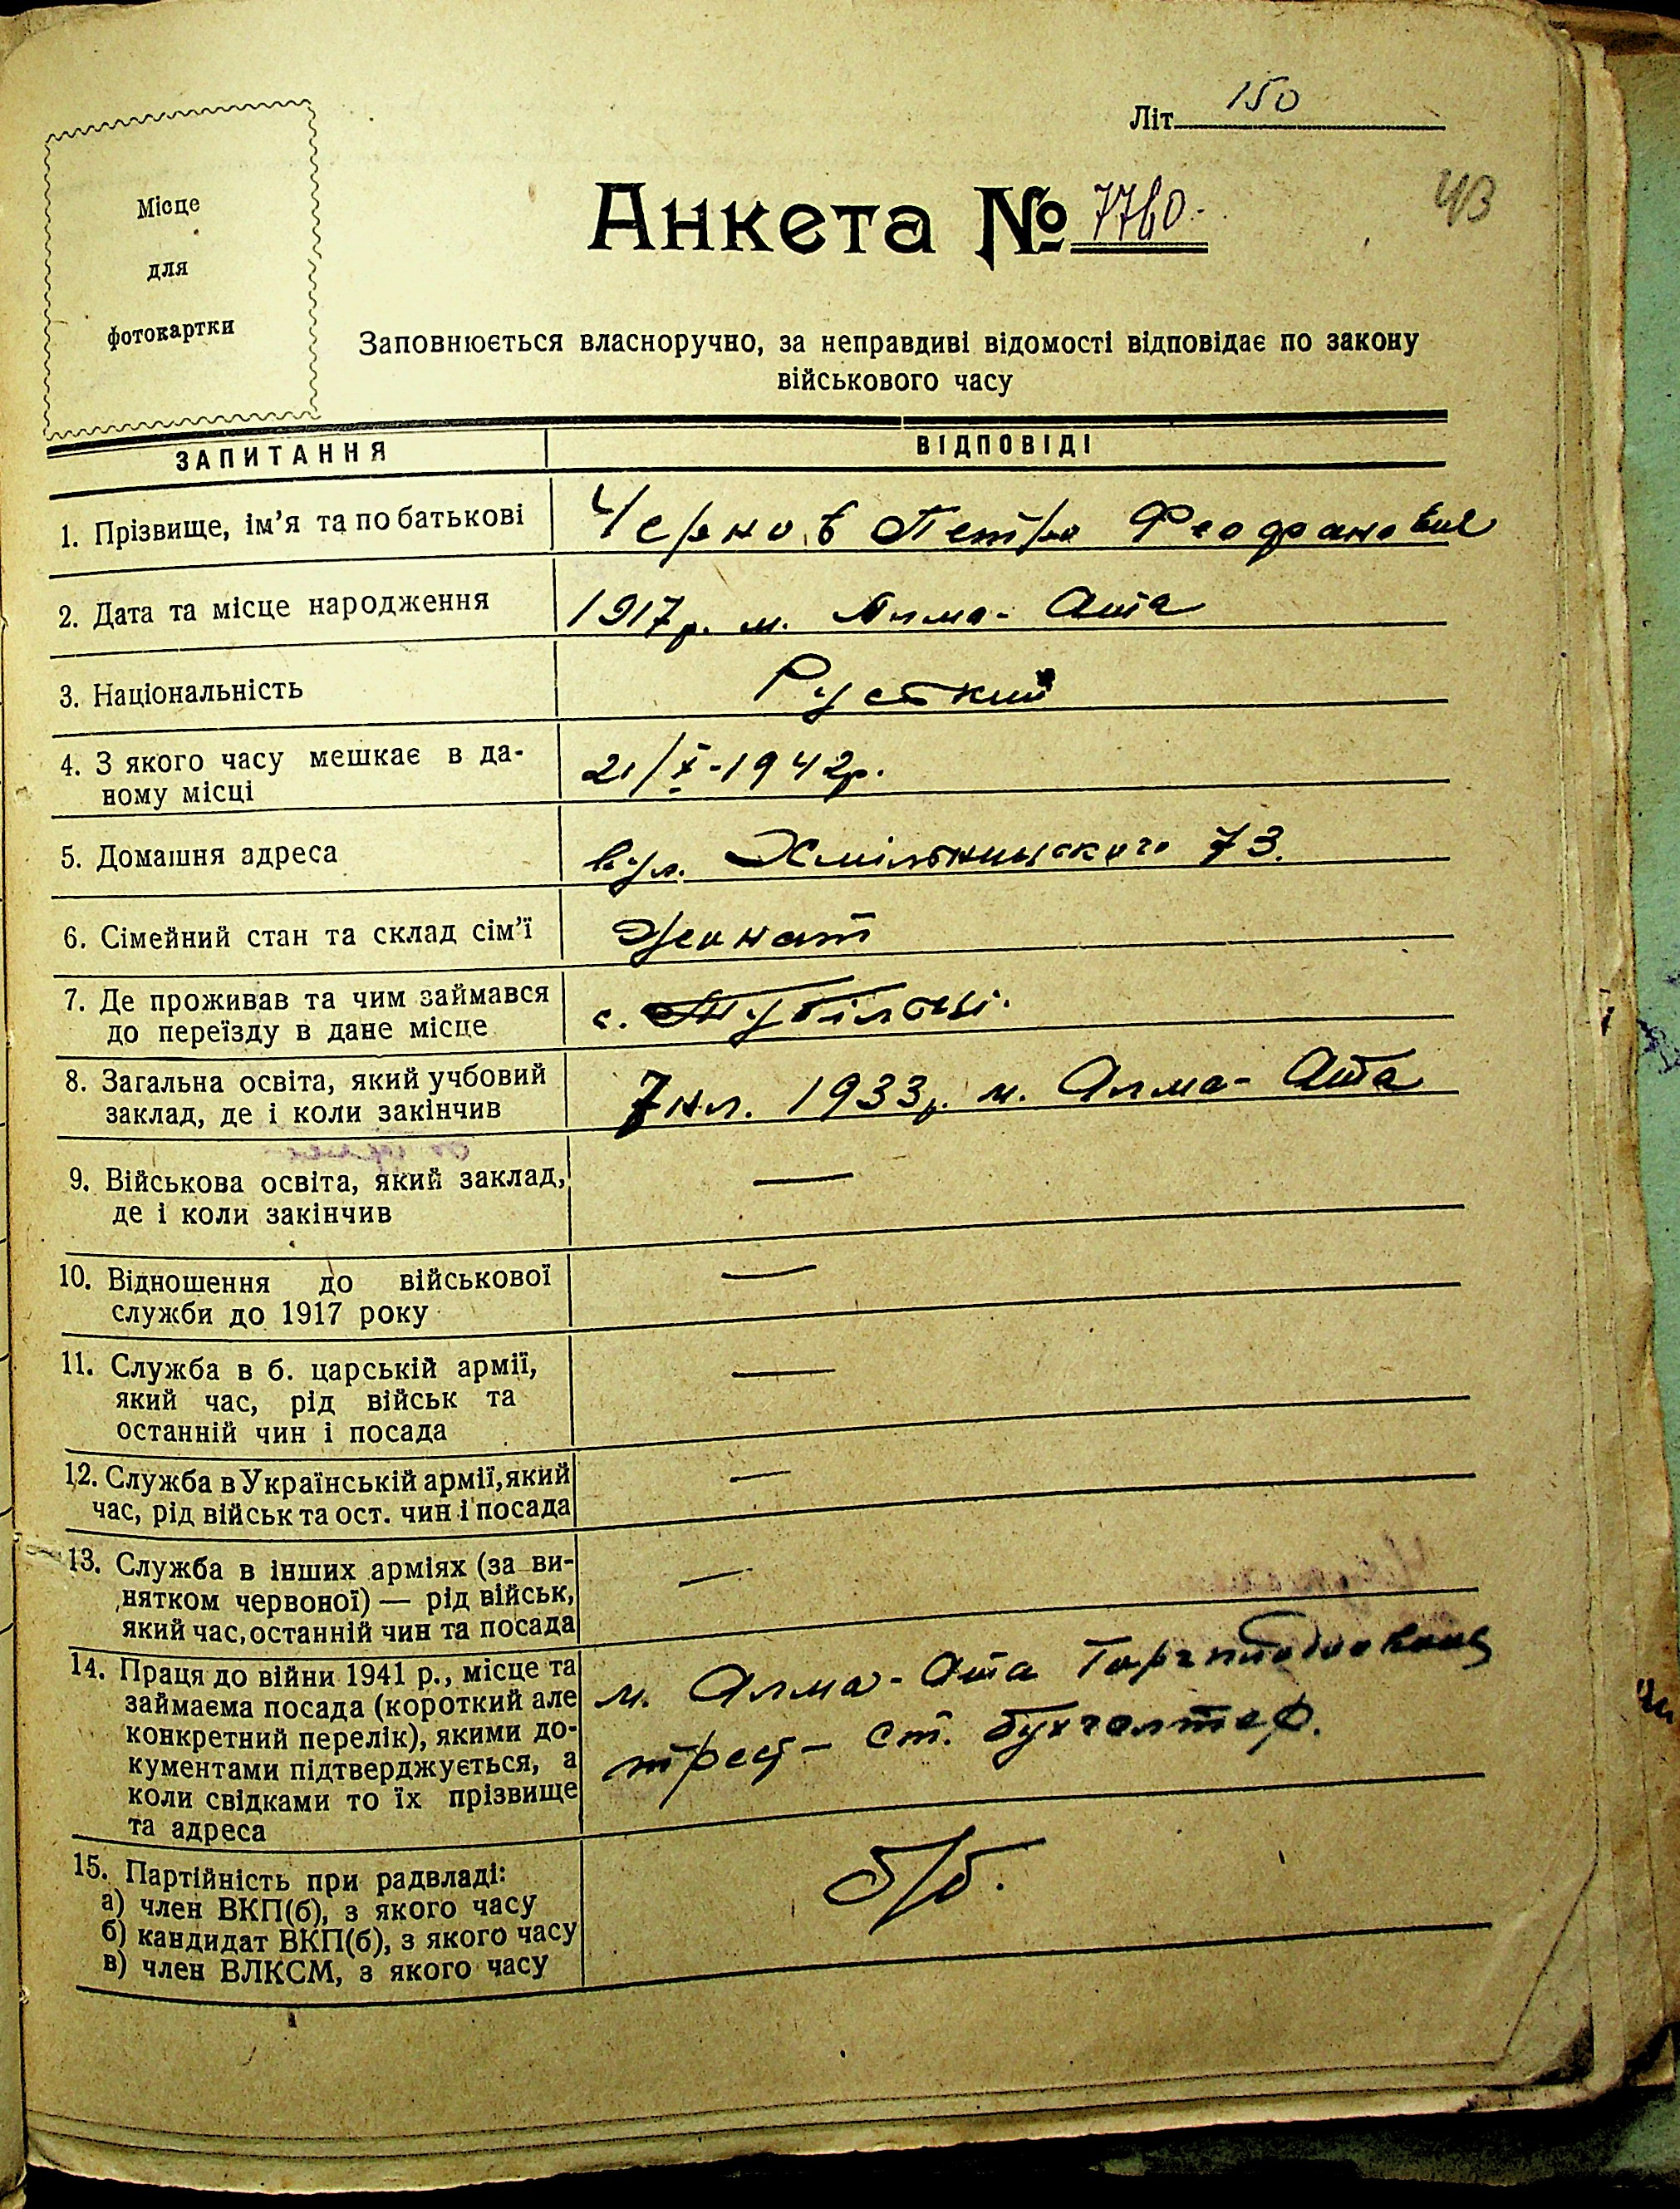 Літ. 150
Місце
для
фотокартки
Анкета № 7760.
43
Заповнюється власноручно, за неправдиві відомості відповідає по закону
військового часу
ЗАПИТАННЯ ВІДПОВІДІ
1. Прізвище, ім'я та по батькові Чернов Петро
2. Дата та місце народження 1917р. м. Алма-Ата
3. Національність Русткий
4. З якого часу мешкає в да-
ному місці 21/X-1942р.
5. Домашня адреса вул. Хмільницкого 73.
6. Сімейний стан та склад сім'ї Жонат
7. Де проживав та чим займався
до переїзду в дане місце с.
8. Загальна освіта, який учбовий
заклад, де і коли закінчив 7 кл. 1933р. м. Алма-Ата
9. Військова освіта, який заклад, —
де і коли закінчив
10. Відношення до військової —
служби до 1917 року
11. Служба в б. царській армії, —
який час, рід військ та
останній чин і посада
12. Служба в Українській армії, який —
час, рід військ та ост. чин і посада
13. Служба в інших арміях (за ви- —
нятком червоної) — рід військ,
який час, останній чин та посада
14. Праця до війни 1941 р., місце та м. Алма-Ата
займаєма посада (короткий але
конкретний перелік), якими до- трест - ст. бухгалтер.
кументами підтверджується, а
коли свідками то їх прізвище
та адреса
15. Партійність при радвладі: б/б.
а) член ВКП(б), з якого часу
б) кандидат ВКП(б), з якого часу
в) член ВЛКСМ, з якого часу